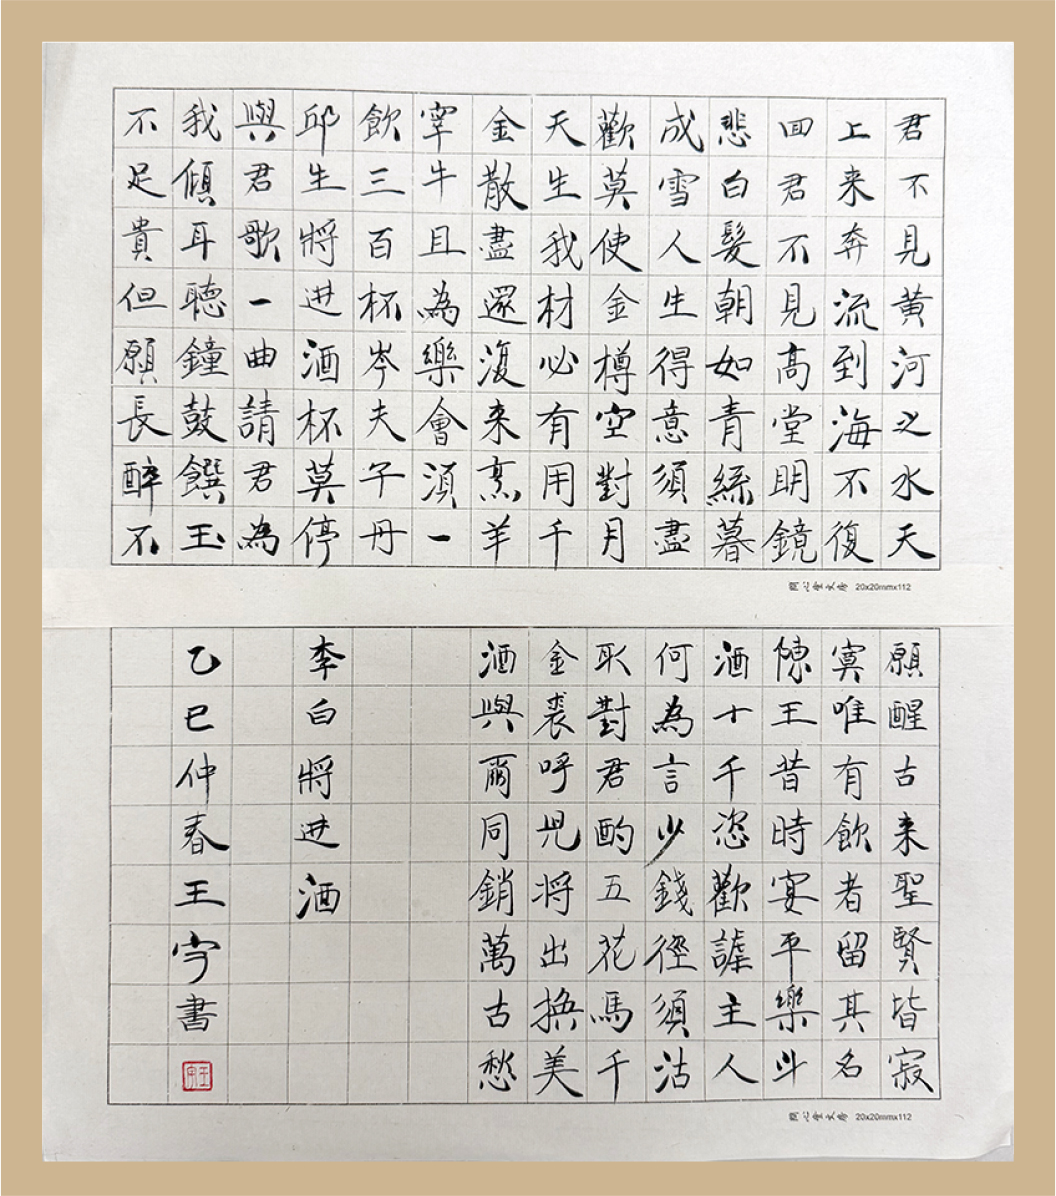 君不見黄河之水天
上来奔流到海不復
囬君不見高堂明鏡
悲白髮朝如青絲暮
成雪人生得意須盡
歡莫使金樽空對月
天生我材必有用千
金散盡還復来烹羊
宰牛且為樂會湏一
飲三百杯岑夫子丹
邱生將进酒杯莫停
與君歌一曲請君為
我傾耳聽鐘鼓饌玉
不足貴但願長醉不
20x20mmx112
願醒古来聖賢皆寂
寞唯有飲者留其名
陳王昔時宴平樂斗
酒十千恣歡謔主人
何為言少錢徑須沽
取對君酌五花馬千
金裘呼兒将出換美
酒與爾同銷萬古愁
李白將进酒
乙巳仲春王書
20x20mmx112